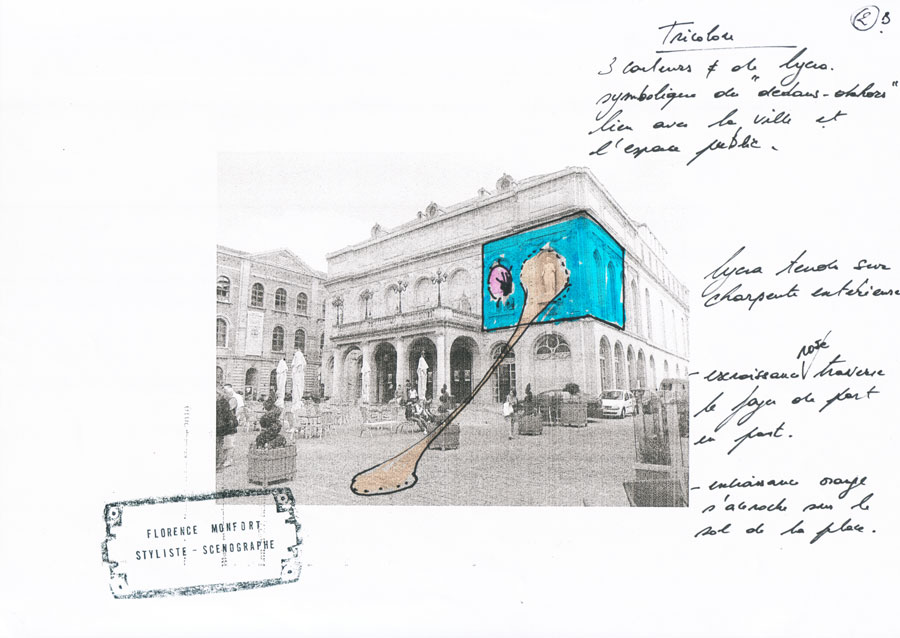 2 B
Tricolore
3 couleurs ≠ de lycra.
symbolique du "dedans-dehors"
lien avec la ville et
l'espace public.
lycra tendu sur
charpente extérieure
rose
- excroissance traverse
le foyer de part
en part.
- excroissance orange
s'accroche sur le
sol de la place.
FLORENCE MONFORT
STYLISTE - SCENOGRAPHE